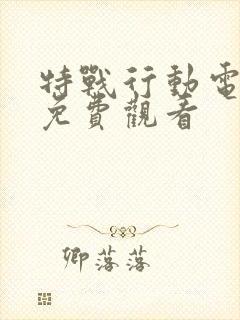 特戰行動電
免費觀看
卿落落